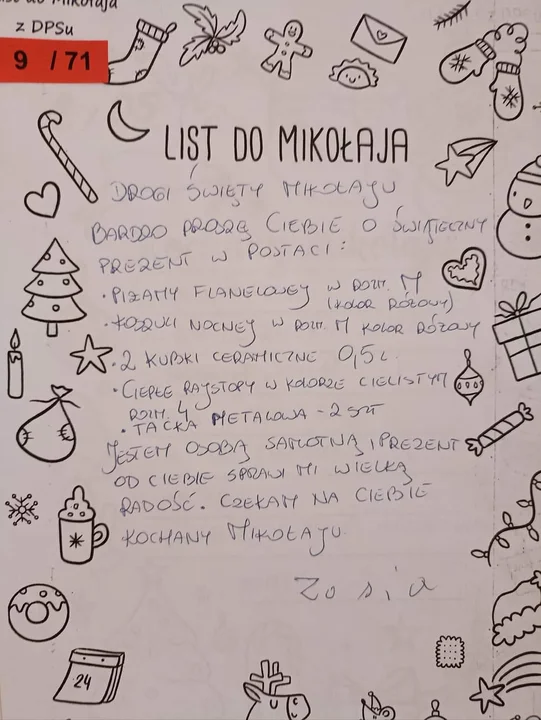 List do Mikołaja
z DPSu
9 / 71
LIST DO MIKOŁAJA
DROGI ŚWIĘTY MIKOŁAJU
BARDZO PROSZĘ CIEBIE O ŚWIĄTECZNY
PREZENT W POSTACI:
• PIŻAMY FLANELOWEJ W ROZM. M
(KOLOR RÓŻOWY)
• KOSZULI NOCNEJ W ROZM. M KOLOR RÓŻOWY
• 2 KUBKI CERAMICZNE 0,5 L
• CIEPŁE RAJSTOPY W KOLORZE CIELISTYM
ROZM. 4
• TACKA METALOWA - 2 SZT
JESTEM OSOBĄ SAMOTNĄ I PREZENT
OD CIEBIE SPRAWI MI WIELKĄ
RADOŚĆ. CZEKAM NA CIEBIE
KOCHANY MIKOŁAJU.
Zosia
24